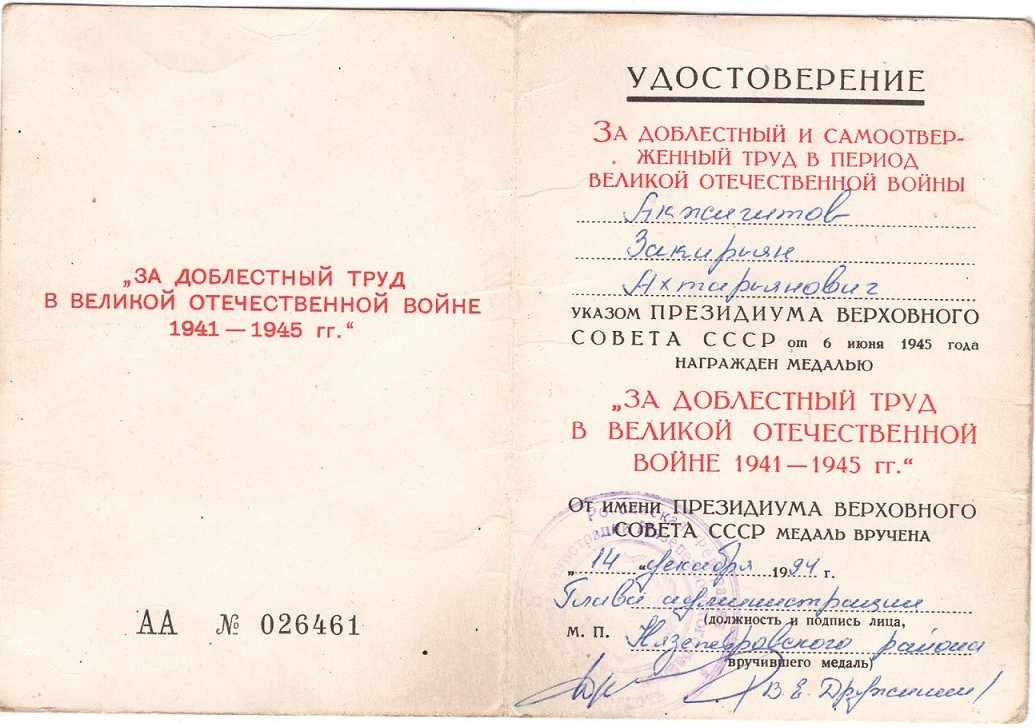 „ЗА ДОБЛЕСТНЫЙ ТРУД
В ВЕЛИКОЙ ОТЕЧЕСТВЕННОЙ ВОЙНЕ
1941 — 1945 гг.“
АА № 026461
УДОСТОВЕРЕНИЕ
ЗА ДОБЛЕСТНЫЙ И САМООТВЕР-
ЖЕННЫЙ ТРУД В ПЕРИОД
ВЕЛИКОЙ ОТЕЧЕСТВЕННОЙ ВОЙНЫ
Акжигитов
Закирьян
Ахтарьянович
УКАЗОМ ПРЕЗИДИУМА ВЕРХОВНОГО
СОВЕТА СССР от 6 июня 1945 года
НАГРАЖДЕН МЕДАЛЬЮ
„ЗА ДОБЛЕСТНЫЙ ТРУД
В ВЕЛИКОЙ ОТЕЧЕСТВЕННОЙ
ВОЙНЕ 1941 — 1945 гг.“
ОТ ИМЕНИ ПРЕЗИДИУМА ВЕРХОВНОГО
СОВЕТА СССР МЕДАЛЬ ВРУЧЕНА
„14 “ декабря 1994 г.
Глава администрации
(должность и подпись лица,
М. П. Нязепетровского района
вручившего медаль)
/В. Е. Дружинин/